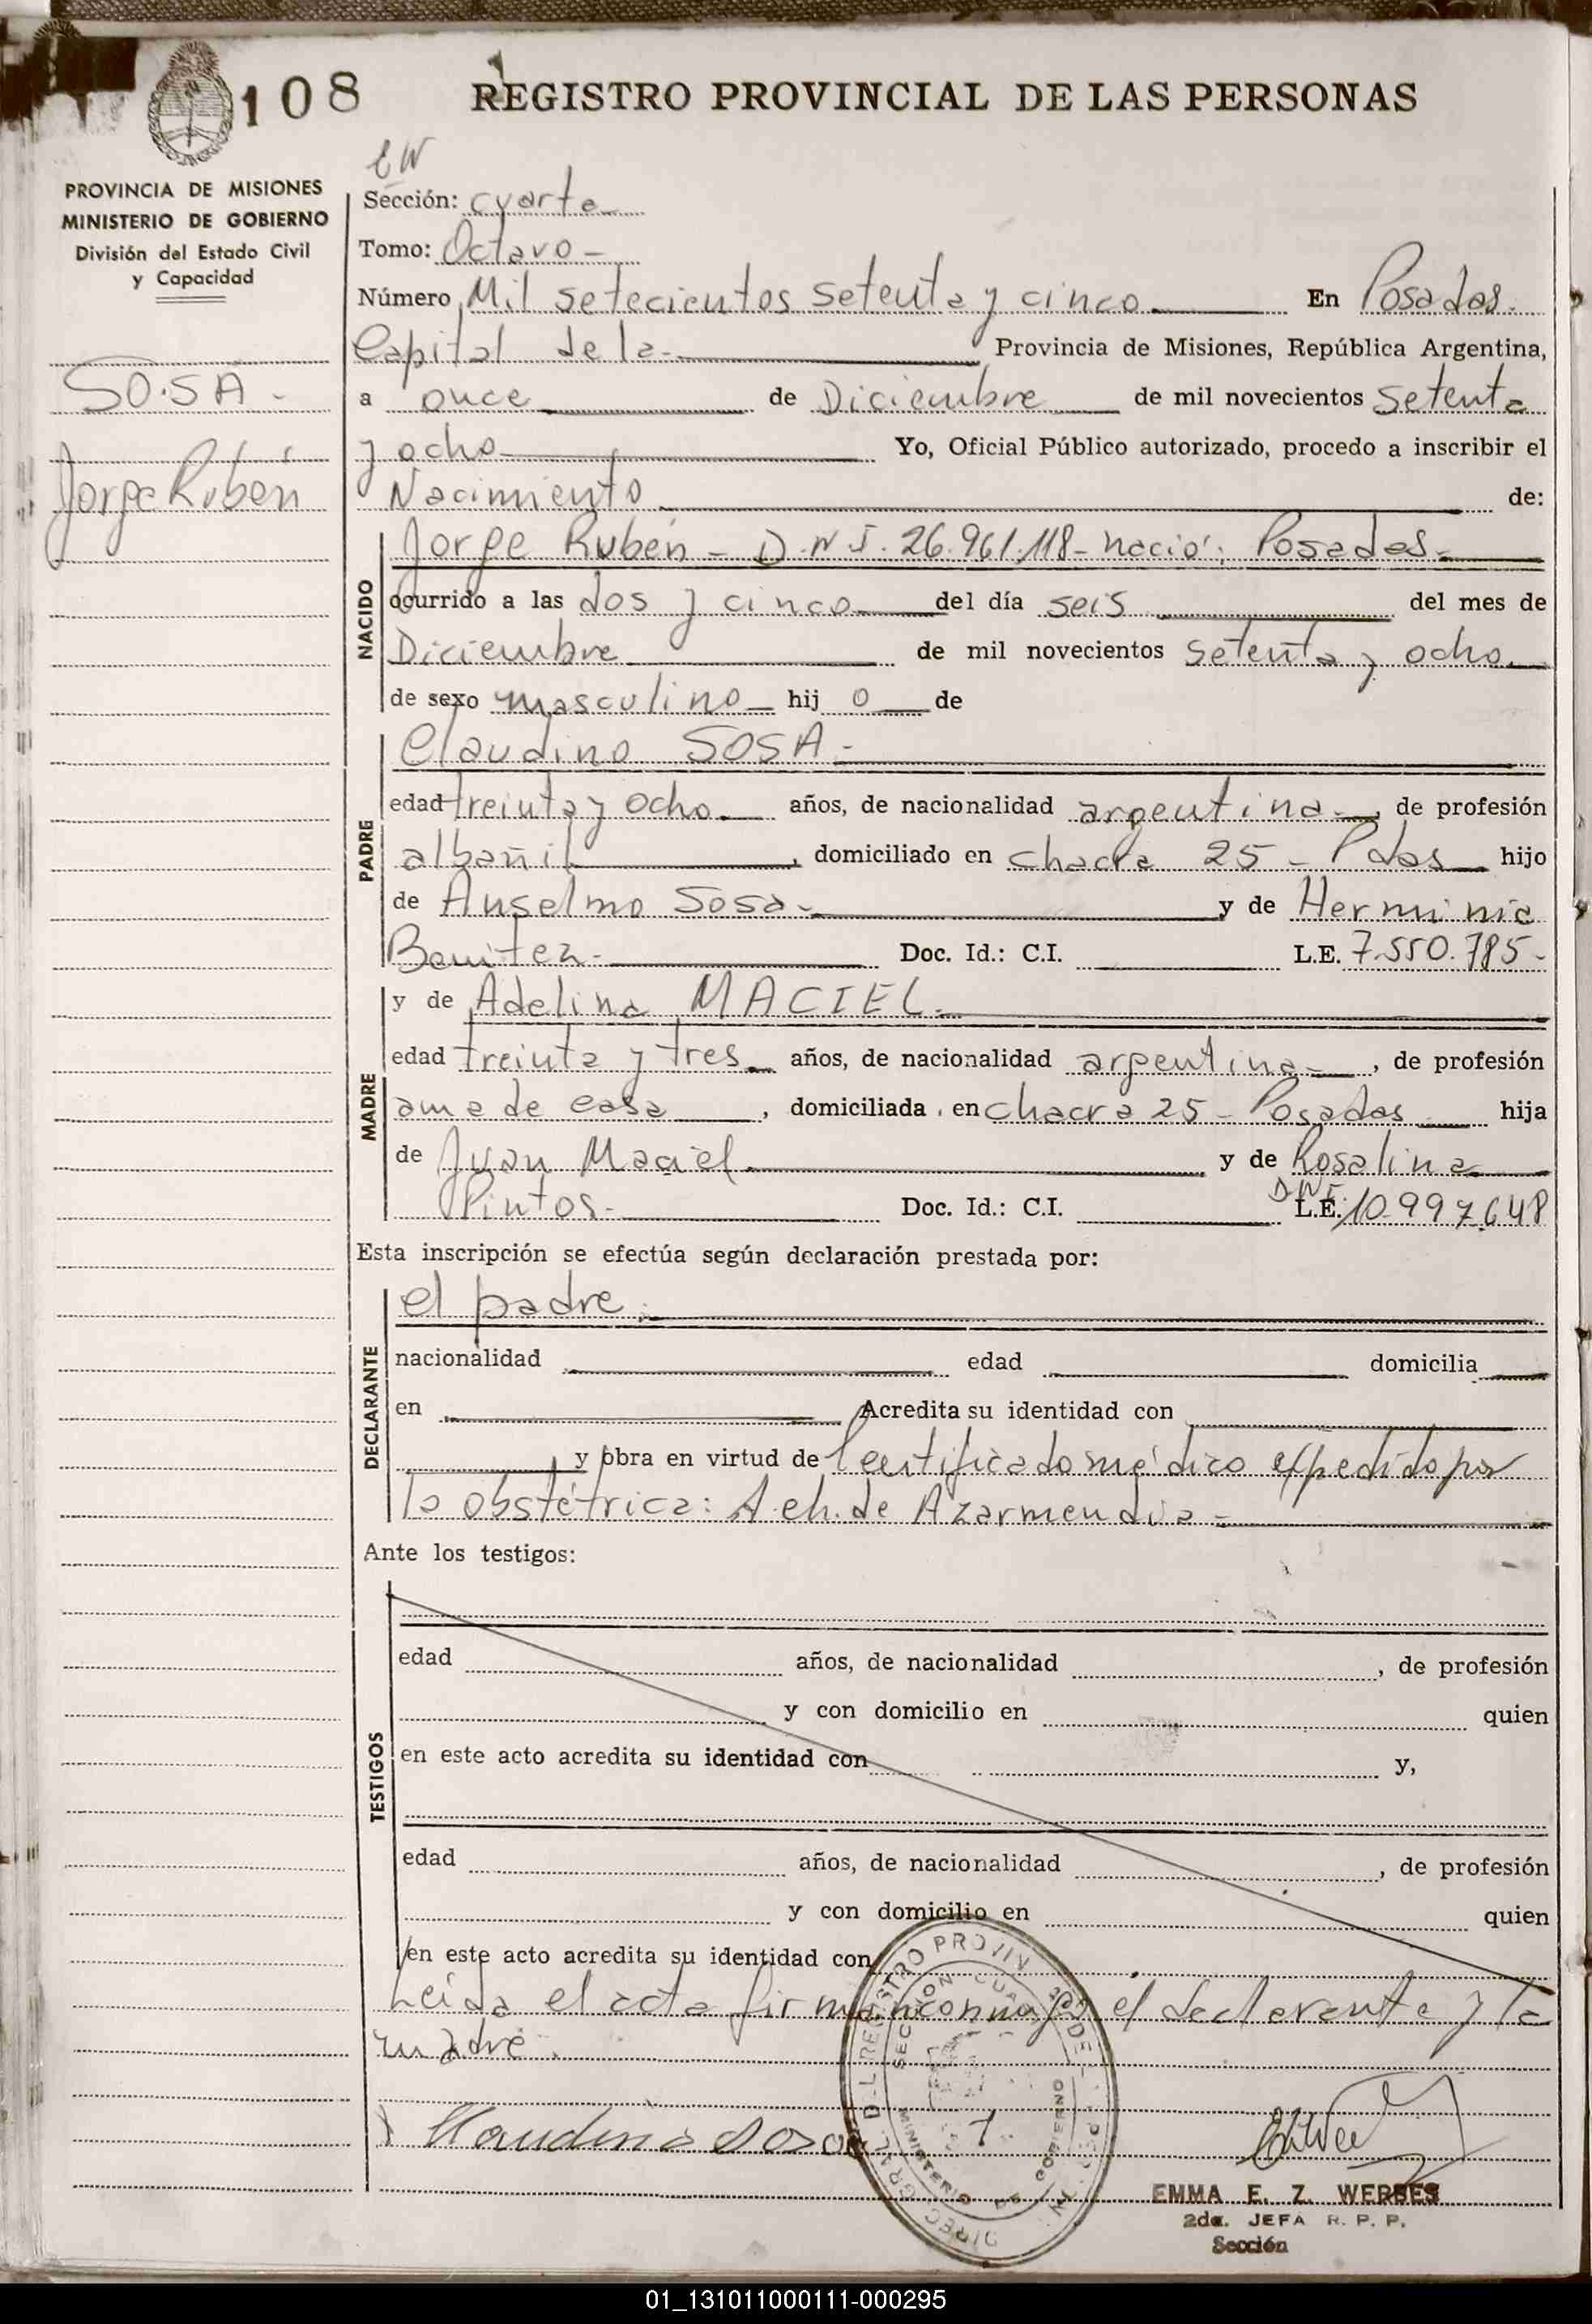 108 REGISTRO PROVINCIAL DE LAS PERSONAS
EW
PROVINCIA DE MISIONES
MINISTERIO DE GOBIERNO
División del Estado Civil
y Capacidad
SO.SA -
Jorge Rubén
Sección: cuarta
Tomo: Octavo -
Número Mil setecientos setenta y cinco En Posadas.
Capital de la Provincia de Misiones, República Argentina,
a once de Diciembre de mil novecientos setenta
y ocho Yo, Oficial Público autorizado, procedo a inscribir el
Nacimiento de:
NACIDO
Jorge Rubén - D.N.I. 26.961.118 - nació: Posadas.
ocurrido a las dos y cinco del día seis del mes de
Diciembre de mil novecientos setenta y ocho
de sexo masculino hij o de
PADRE
Claudino SOSA -
edad treinta y ocho años, de nacionalidad argentina, de profesión
albañil, domiciliado en chacra 25 - Pdas hijo
de Anselmo Sosa - y de Herminia
Benitez - Doc. Id.: C.I. L.E. 7.550.785 -
MADRE
y de Adelina MACIEL.
edad treinta y tres años, de nacionalidad argentina, de profesión
ama de casa, domiciliada, en chacra 25 - Posadas hija
de Juan Maciel y de Rosalina
Pintos - Doc. Id.: C.I. DNI L.E. 10.997.648
Esta inscripción se efectúa según declaración prestada por:
DECLARANTE
el padre.
nacionalidad edad domicilia
en Acredita su identidad con
y obra en virtud de Certificado médico expedido por
la obstétrica: A. ch. de Azarmendia -
Ante los testigos:
TESTIGOS
edad años, de nacionalidad , de profesión
y con domicilio en quien
en este acto acredita su identidad con y,
edad años, de nacionalidad , de profesión
y con domicilio en quien
en este acto acredita su identidad con
Leída el acta firman conmigo el declarante y la
madre.
Claudino Sosa
SECCION
MINISTERIO DE GOBIERNO
EMMA E. Z. WERBES
2da. JEFA R. P. P.
Sección
01_131011000111-000295